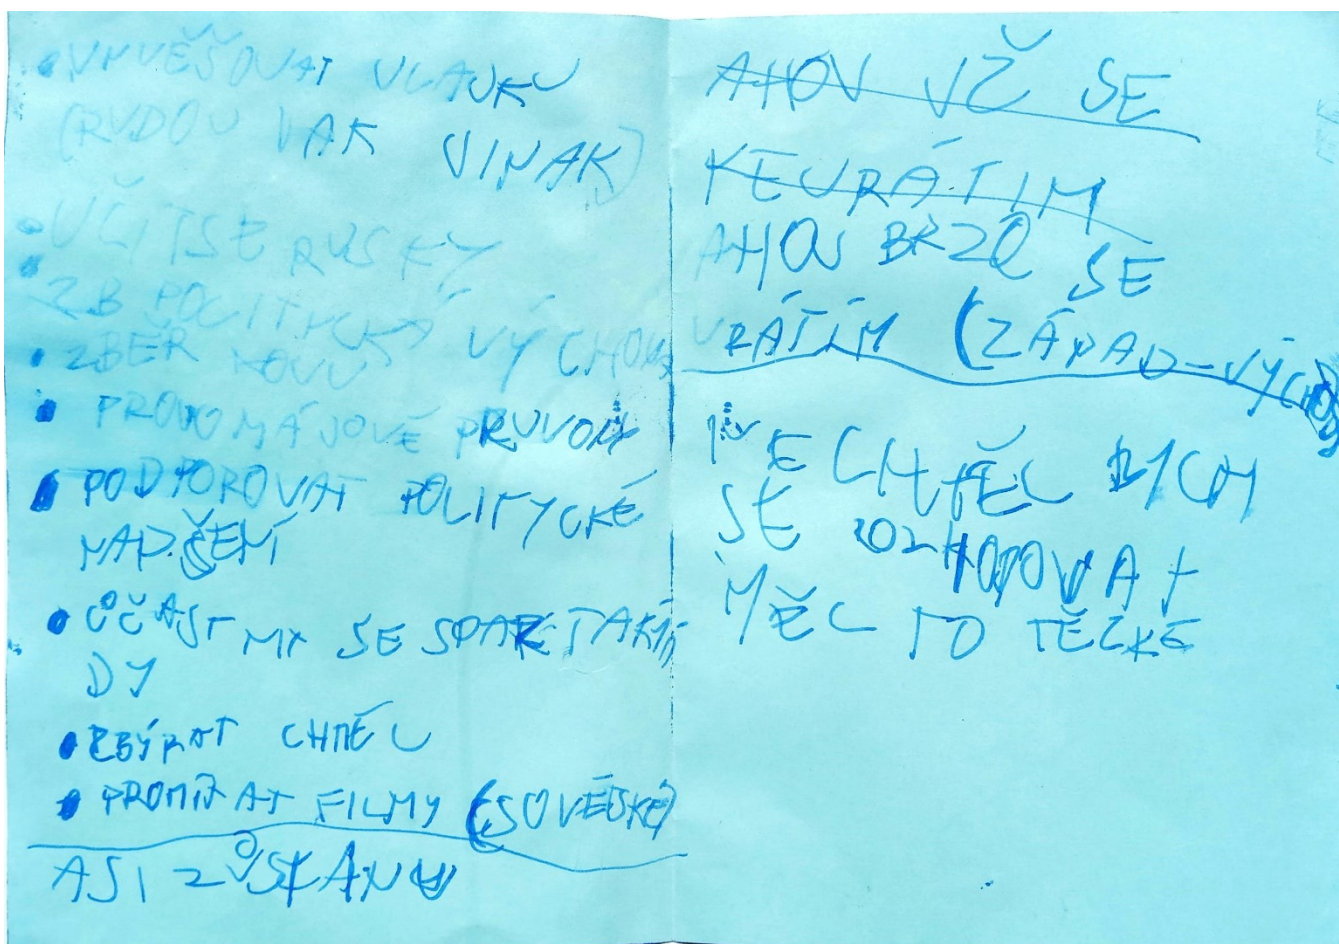 • VYVĚŠOVAT VLAJKU
(RUDOU JAK JINAK)
• UČIT SE RUSKY
• ZB POLITYCKÁ VÝCHOVA
• ZBĚR KOVU
• PRVOMÁJOVÉ PRUVODY
• PODPOROVAT POLITYCKÉ
NADŠENÍ
• ÚČASTNY SE SPARTAKIÁ
DY
• ZBÝRAT CHMEL
• PROMÍTAT FILMY (SOVĚTSKÉ)
ASI ZŮSTANU
AHOJ JŽ SE
NEVRÁTIM
AHOJ BRZO SE
VRÁTÍM (ZÁPAD-VÝCHOD)
NECHTĚL BYCH
SE ROZHODOVAT
MĚL TO TĚŽKÉ